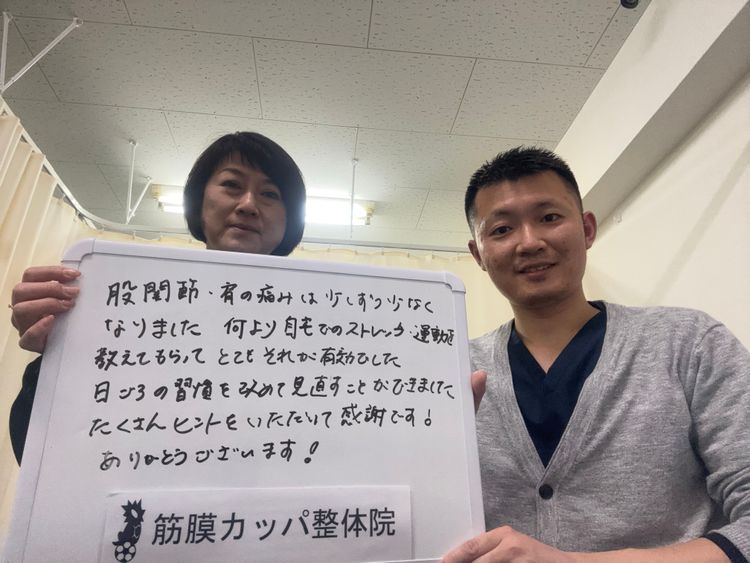 股関節・肩の痛みは少しずつ少なく
なりました 何より自宅でのストレッチ・運動を
教えてもらって とても それが有効でした
日ごろの習慣を改めて見直すことができました
たくさんヒントをいただいて感謝です!
ありがとうございます!
筋膜カッパ整体院